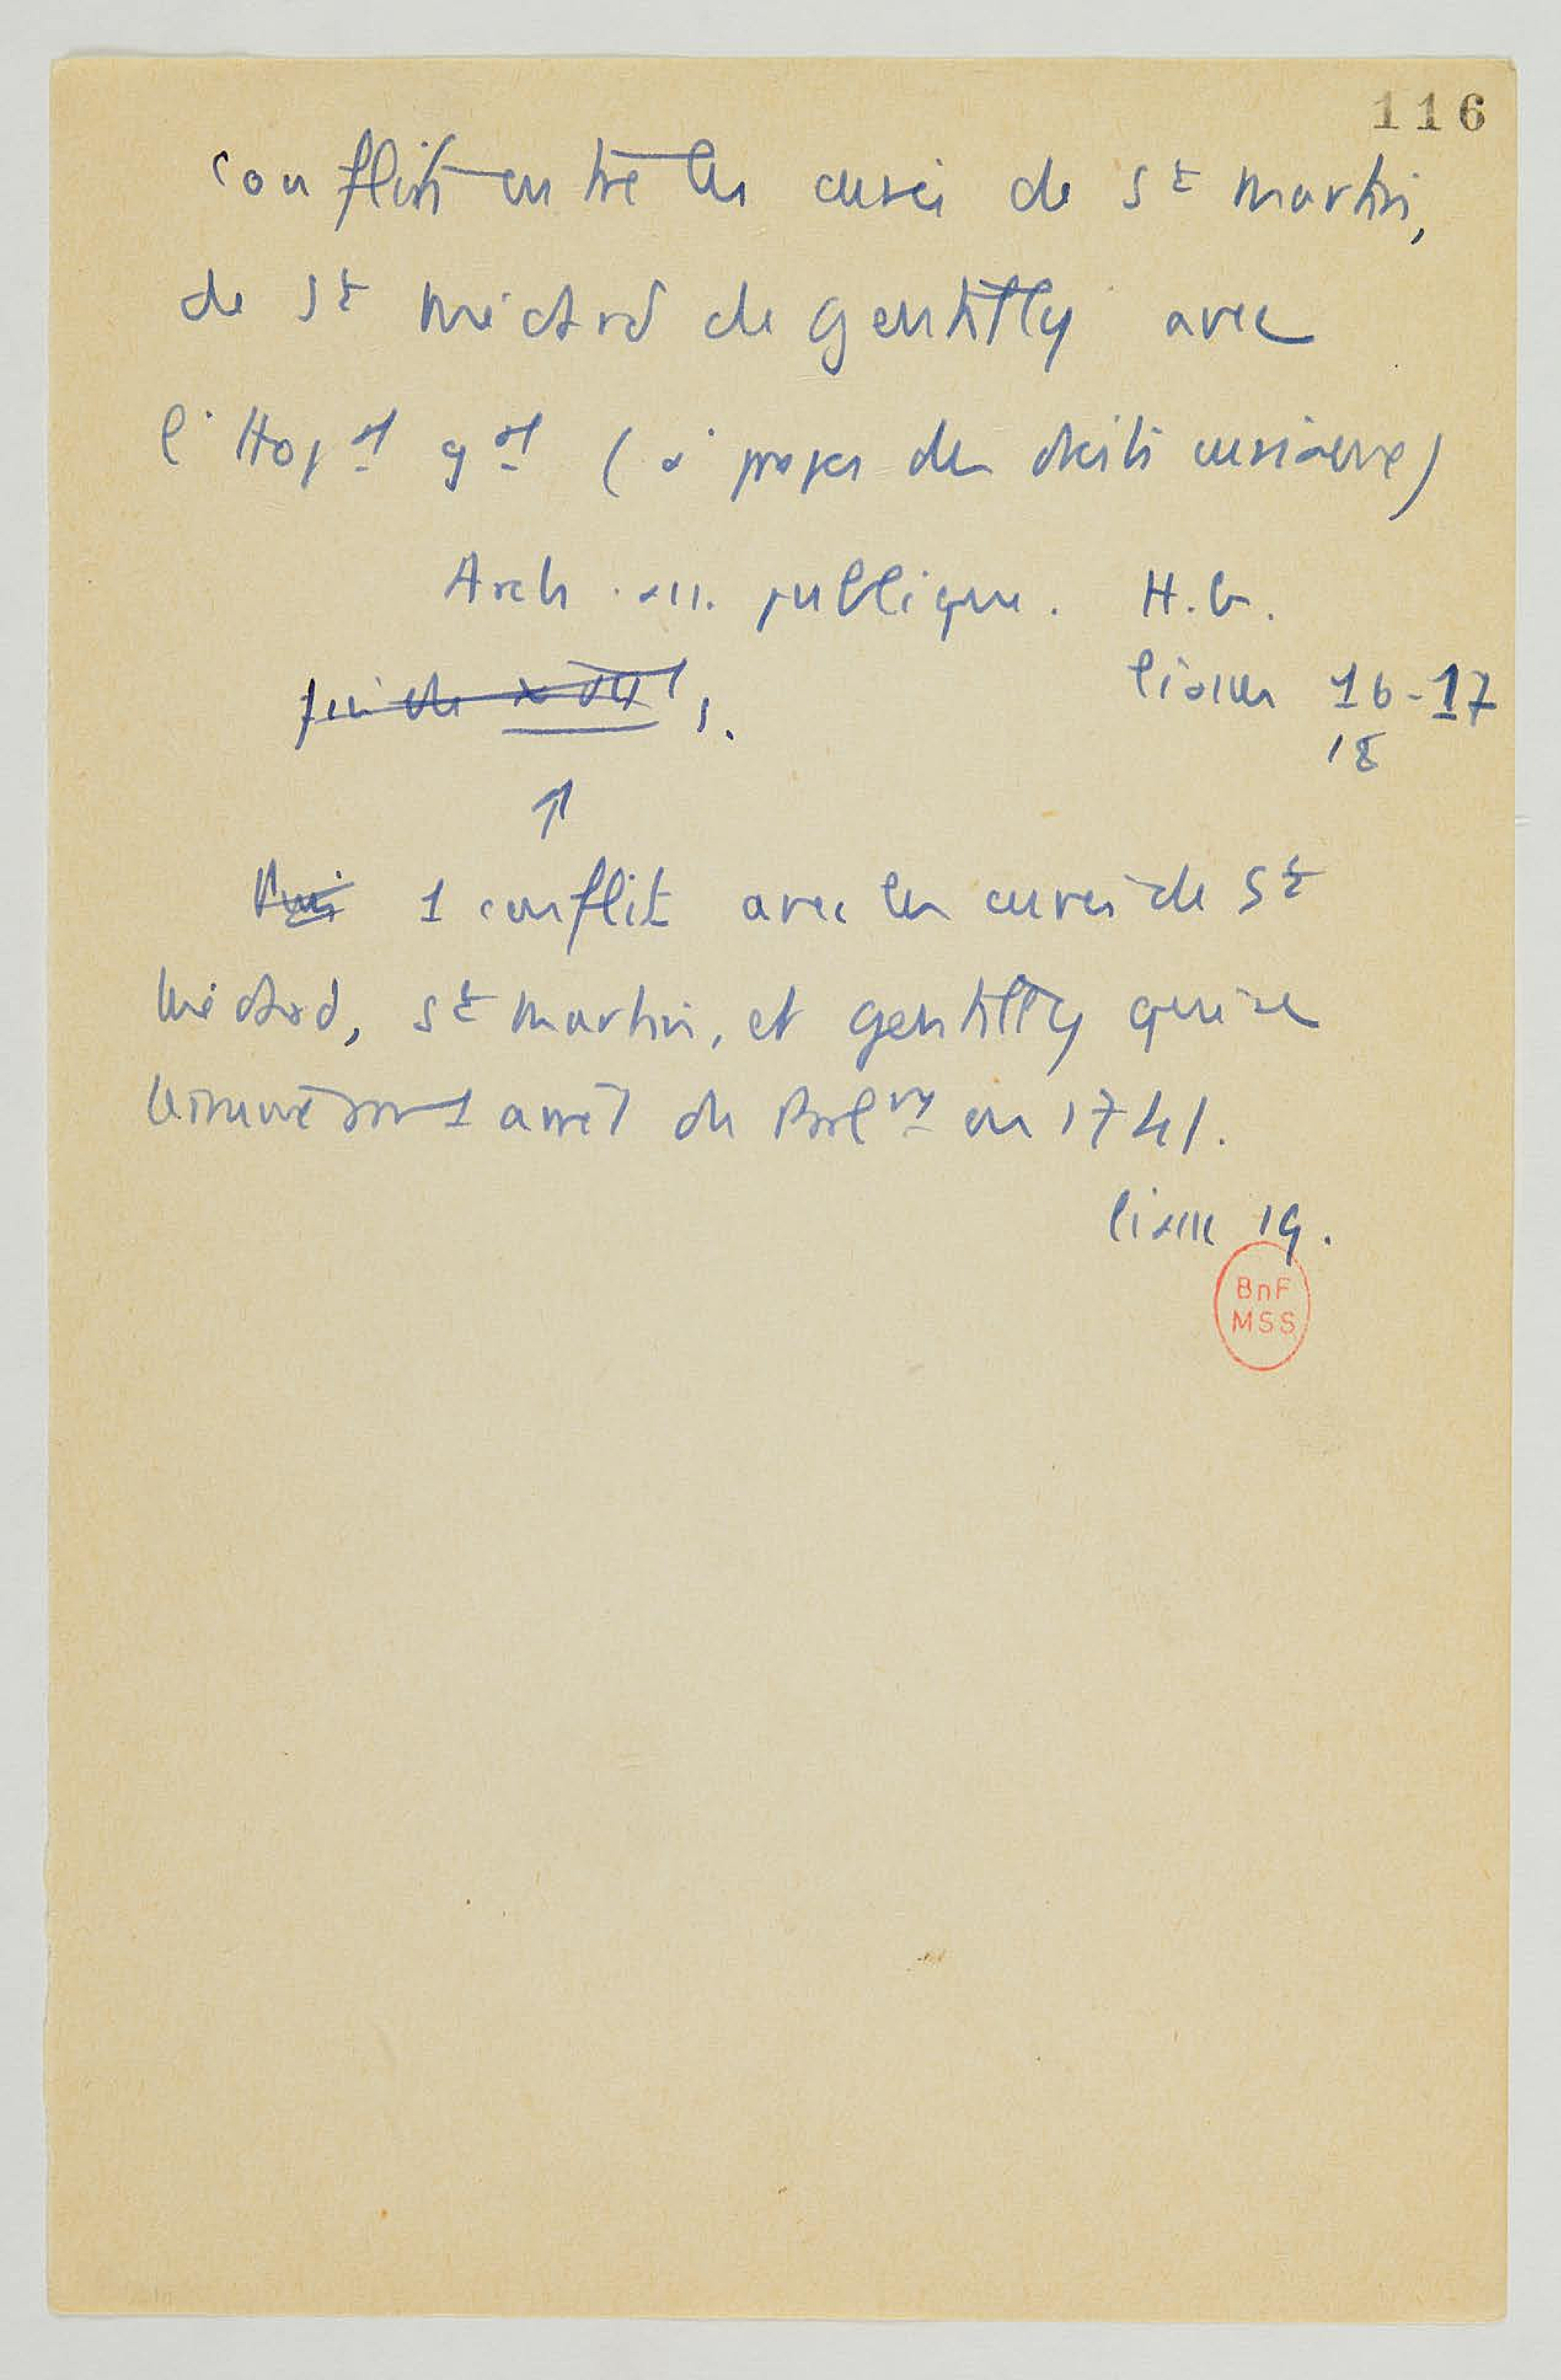 116
Conflits entre les curés de St Martin,
de St Médard de Gentilly avec
l'Hopal gal (à propos des droits curiaux)
Arch. ass. publique. H.G.
fin du XVIIe s.
liasses 16-17
18
↑
1 conflit avec les curés de St
Médard, St Martin, et Gentilly qui se
termine par 1 arrêt du Parlnt en 1741.
liasse 19.
BnF
MSS